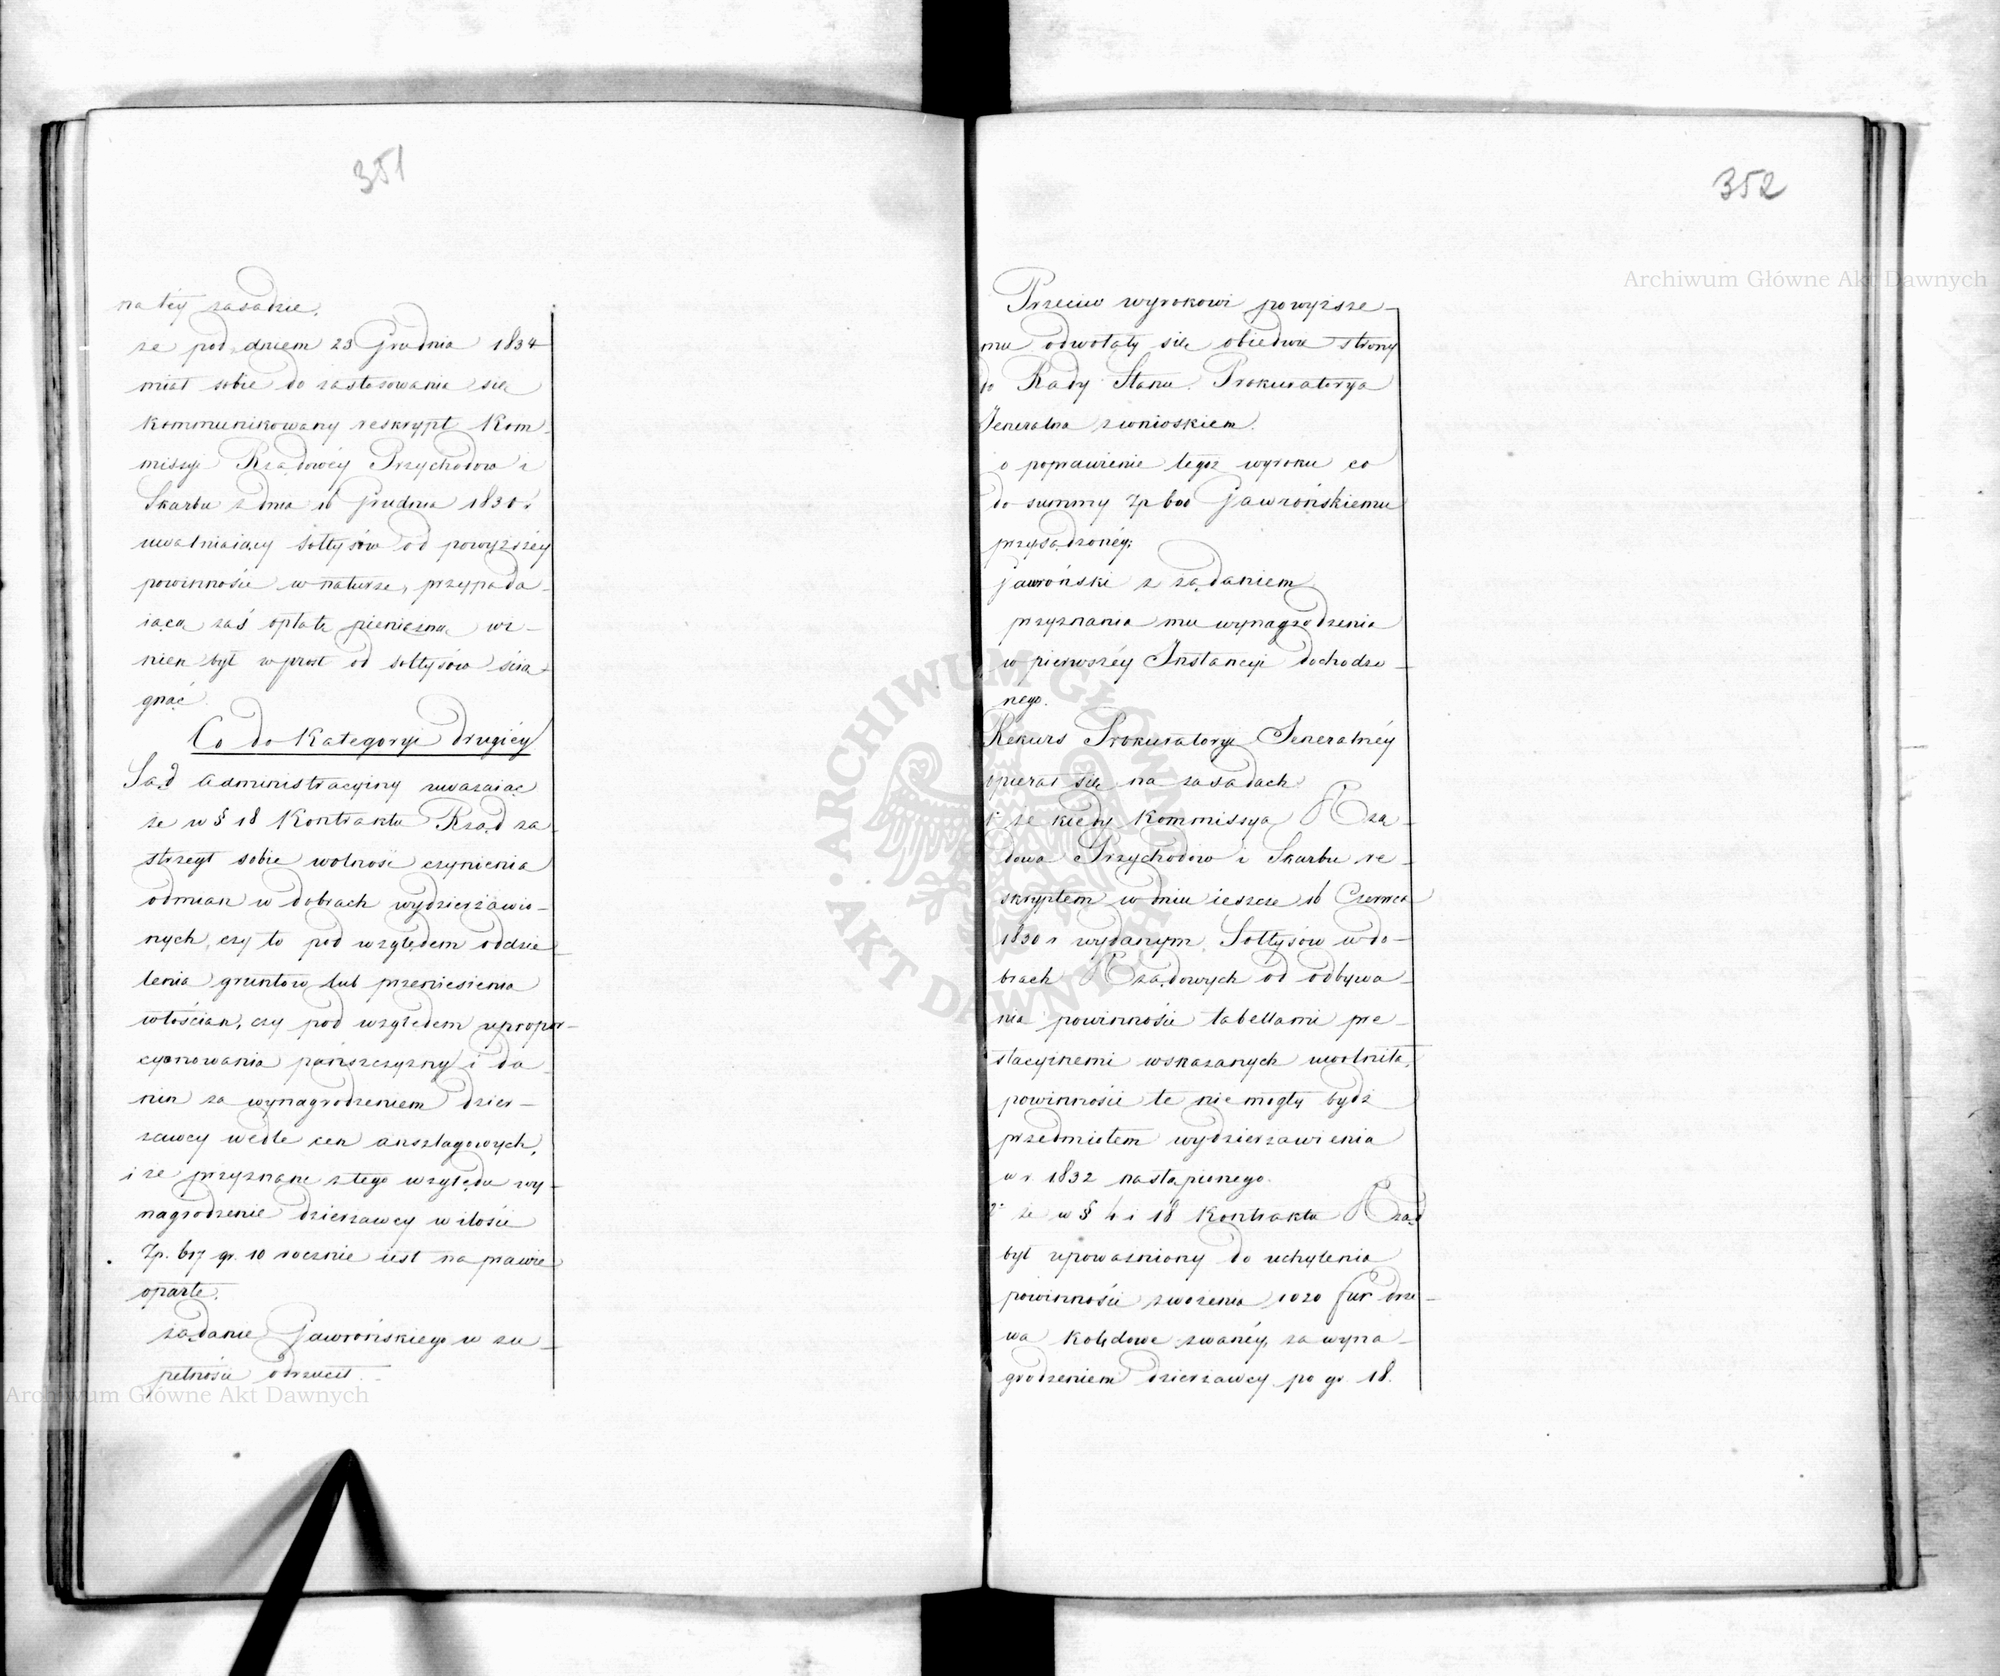 351
na téy zasadzie,
że pod dniem 23 Grudnia 1834
miał sobie do zastosowania się
kommunikowany reskrypt Kom-
missyi Rządowéy Przychodów i
Skarbu z dnia 16 Grudnia 1830 r
uwalniaiący sołtysów od powyższéy
powinności w naturze, przypada-
iącą zaś opłatę pieniężną wi-
nien był wprost od sołtysów ścią-
gnąć.
Co do Kategoryi drugiéy
Sąd Administracyiny uważaiąc
że w § 18 Kontraktu Rząd za-
strzegł sobie wolność czynienia
odmian w dobrach wydzierżawio-
nych, czy to pod względem oddzie-
lenia gruntów lub przeniesienia
włościan, czy pod względem upropor-
cyonowania pańszczyzny i da-
nin za wynagrodzeniem dzier-
żawcy wedle cen anszlagowych,
i że przyznane z tego względu wy-
nagrodzenie dzierżawcy w ilości
Zp. 617 gr. 10 rocznie iest na prawie
oparte,
żądanie Gawrońskiego w zu-
pełności odrzucił.
352
Przeciw wyrokowi powyższe-
mu odwołały się obiedwie strony
do Rady Stanu. Prokuratorya
Jeneralna z wnioskiem.
o poprawienie tegoż wyroku co
do summy Zp 600 Gawrońskiemu
przysądzonéy;
Gawroński z żądaniem
przyznania mu wynagrodzenia
w pierwszéy Instancyi dochodzo-
nego.
Rekurs Prokuratoryi Jeneralnéy
opierał się na zasadach
1° że kiedy Kommissya Rzą-
dowa Przychodów i Skarbu re-
skryptem w dniu ieszcze 16 Czerwca
1830 r wydanym, Sołtysów w do-
brach Rządowych od odbywa-
nia powinności tabellami pre-
stacyinemi wskazanych uwolniła,
powinności te nie mogły bydź
przedmiotem wydzierżawienia
w r 1832 nastąpionego.
2° że w § 4 i 18 Kontraktu Rząd
był upoważniony do uchylenia
powinności zwożenia 1020 fur drze-
wa kolędowe zwanéy, za wyna-
grodzeniem dzierżawcy po gr 18.
Archiwum Główne Akt Dawnych
Archiwum Główne Akt Dawnych
ARCHIWUM GŁÓWNE AKT DAWNYCH